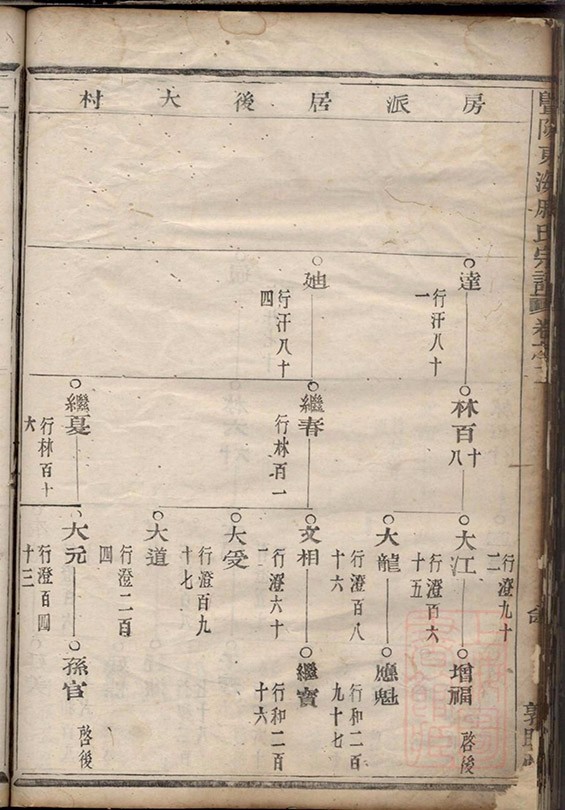 房派居後大村
達
行汗八十一
廸
行汗八十四
林百十八
繼春
行林百一
繼夏
行林百十六
大江
行澄九十二
大龍
行澄百六十五
文相
行澄百八十六
大受
行澄六十一
大道
行澄百九十七
大元
行澄二百四
行澄百四十三
增福
啓後
應魁
行和二百九十七
繼寶
行和二百十六
孫官
啓後